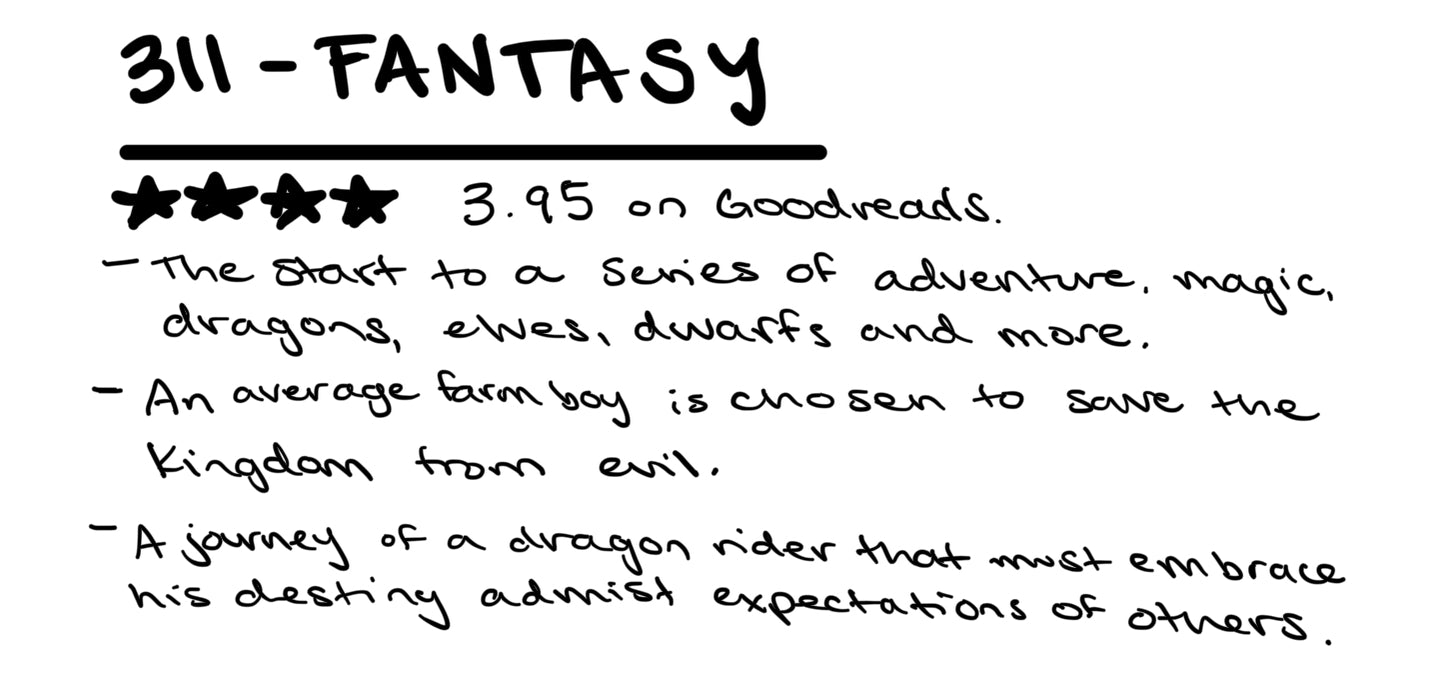 311 - FANTASY
★★★★ 3.95 on Goodreads.
- The start to a series of adventure, magic,
dragons, elves, dwarfs and more.
- An average farm boy is chosen to save the
Kingdom from evil.
- A journey of a dragon rider that must embrace
his destiny admist expectations of others.